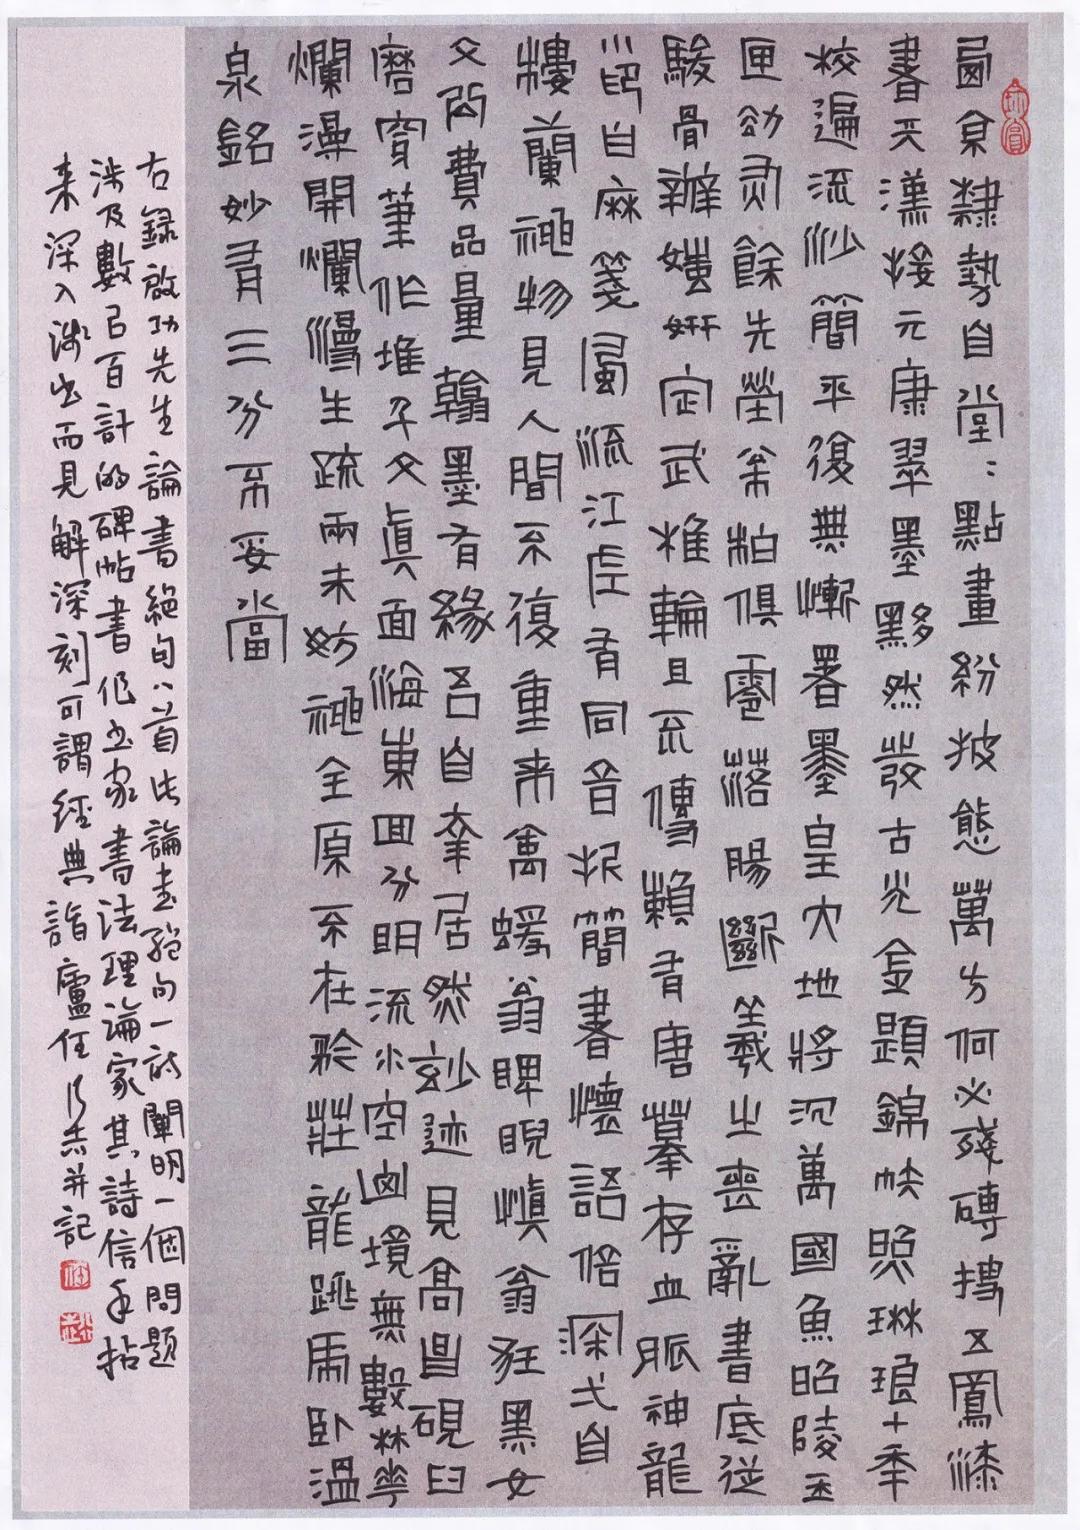 西京隸勢自堂：點畫紛披態萬方何必殘磚搜五鳳漆
書天漢接元康翠墨黟然發古光金題錦帙照琳琅十年
校遍流沙簡平復無慚署墨皇大地將沉萬國魚昭陵玉
匣劫灰餘先塋松柏俱零落腸斷羲之喪亂書底從
駿骨辨媸妍定武椎輪且不傳賴有唐摹存血脈神龍
小印白麻箋風流江左有同音折簡書懷語倍深弌自
樓蘭神物見人間不復重來禽蝯翁睥睨慎翁狂黑女
文公費品量翰墨有緣吾自幸居然妙迹見高昌硯臼
磨穿筆作堆千文真面海東回分明流水空山境無數林花
爛漫開爛漫生疏兩未妨神全原不在矜莊龍跳虎臥溫
泉銘妙有三分不妥當
右錄啟功先生論書絕句八首此論書絕句一詩闡明一個問題
涉及數已百計的碑帖書作書家書法理論家其詩信手拈
来深入淺出而見解深刻可謂經典詣廬任并記